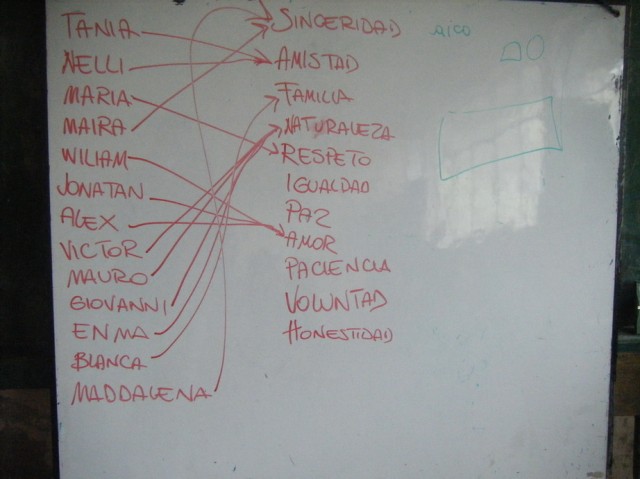 TANIA
NELLI
MARIA
MAIRA
WILIAM
JONATAN
ALEX
VICTOR
MAURO
GIOVANNI
ENMA
BLANCA
MADDALENA
SINCERIDAD
AMISTAD
FAMILIA
NATURALEZA
RESPETO
IGUALDAD
PAZ
AMOR
PACIENCIA
VOLUNTAD
HONESTIDAD